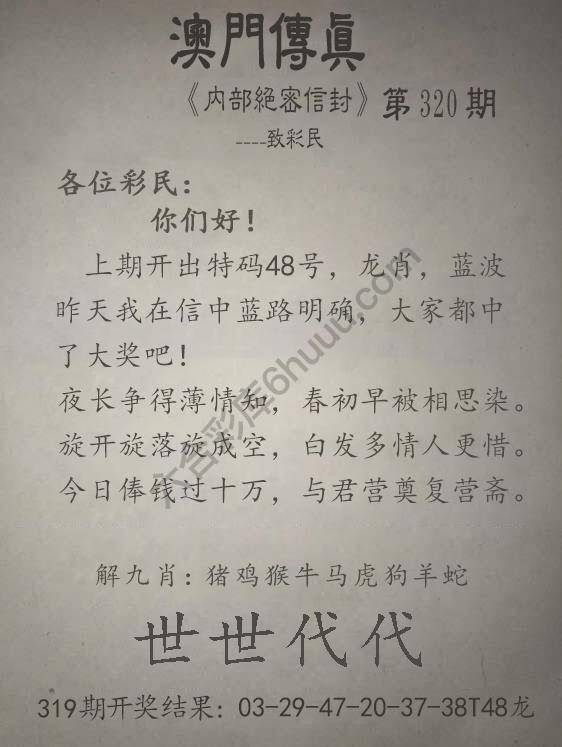 澳門傳真
《内部絕密信封》第320期
----致彩民
各位彩民：
你们好！
上期开出特码48号，龙肖，蓝波
昨天我在信中蓝路明确，大家都中
了大奖吧！
夜长争得薄情知，春初早被相思染。
旋开旋落旋成空，白发多情人更惜。
今日俸钱过十万，与君营奠复营斋。
六合彩库6huuu.com
解九肖：猪鸡猴牛马虎狗羊蛇
世世代代
319期开奖结果：03-29-47-20-37-38T48龙